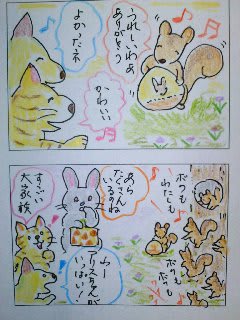 うれしいわぁ
ありがとう
よかったネ
かわいい
ボクも
わたしも
ボクも
ボクも
あら
たくさん
いるのね
わー
リスちゃんが
いっぱい!
すごい
大家族